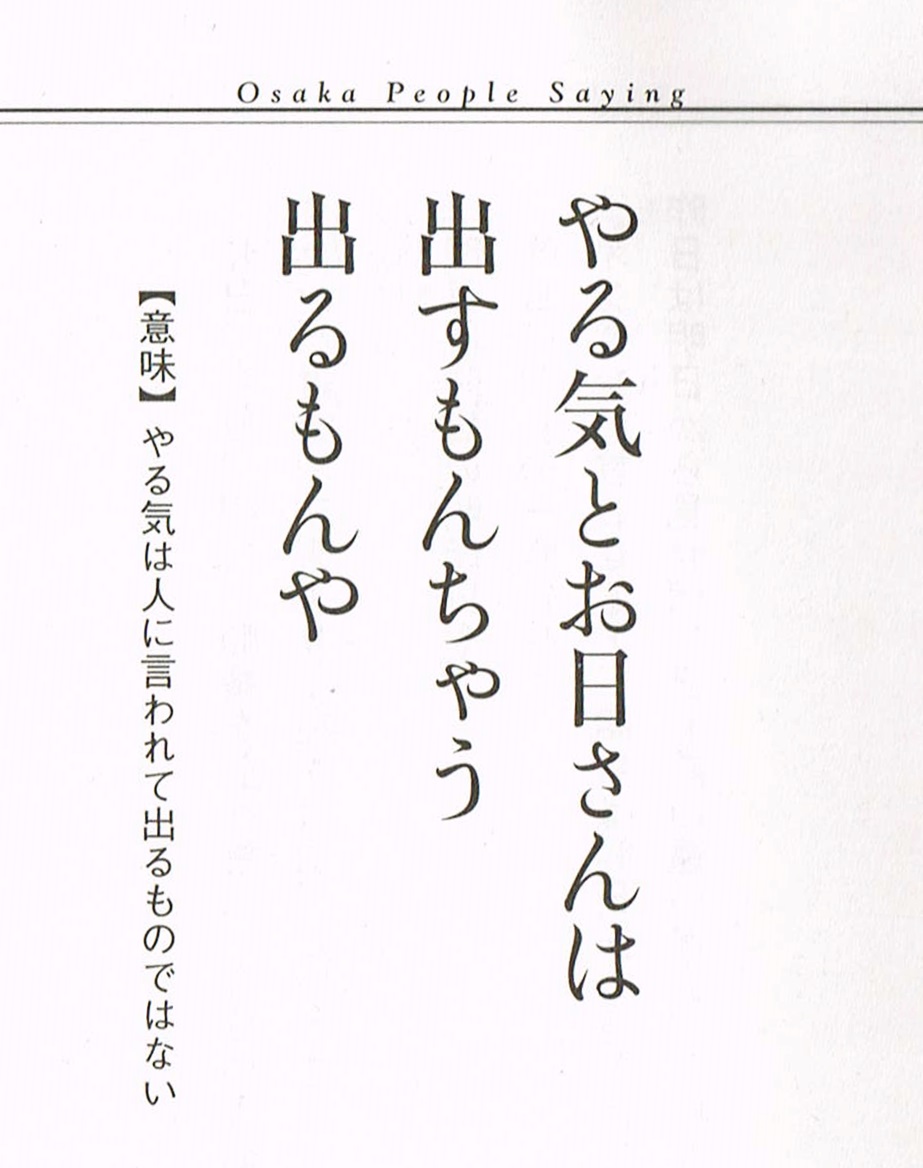 Osaka People Saying
やる気とお日さんは
出すもんちゃう
出るもんや
【意味】やる気は人に言われて出るものではない